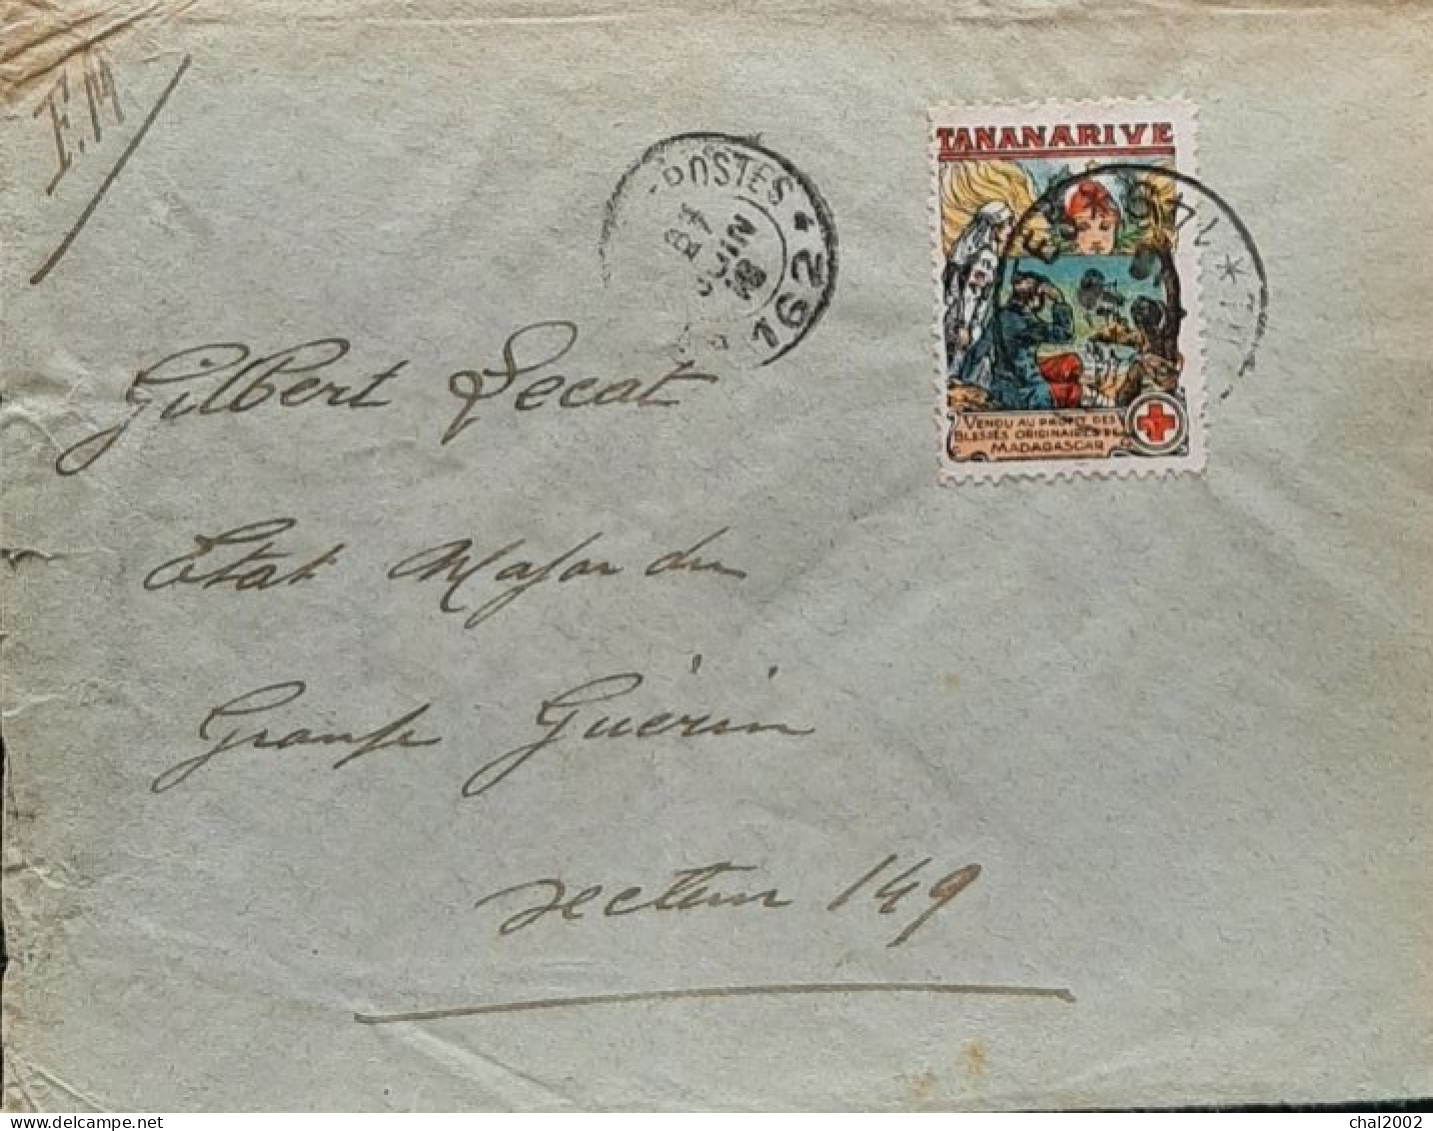 F.M
POSTES
JUIN
162
TANANARIVE
VENDU AU PROFIT DES
BLESSÉS ORIGINAIRES DE
MADAGASCAR
Gilbert Lecat
Etat Major du
Groupe Guérin
Secteur 149
delcampe.net
chal2002